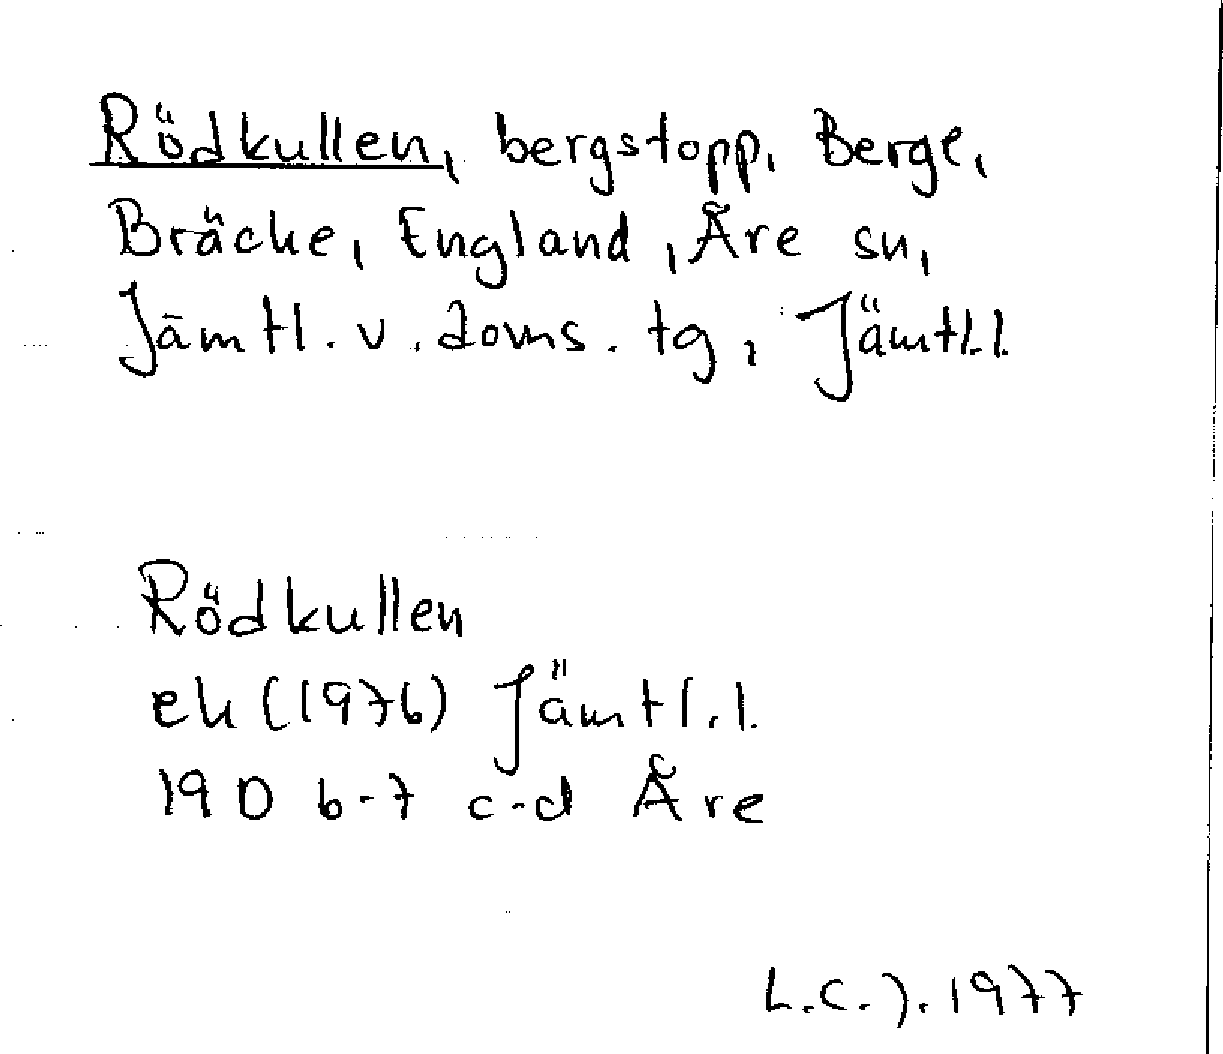 Rödkullen, bergstopp, Berge,
Bräcke, England, Åre sn,
Jämtl. v. doms. tg, Jämtl.l.
Rödkullen
ek (1976) Jämtl.l.
19 D 6-7 c-d Åre
L.C.J. 1977